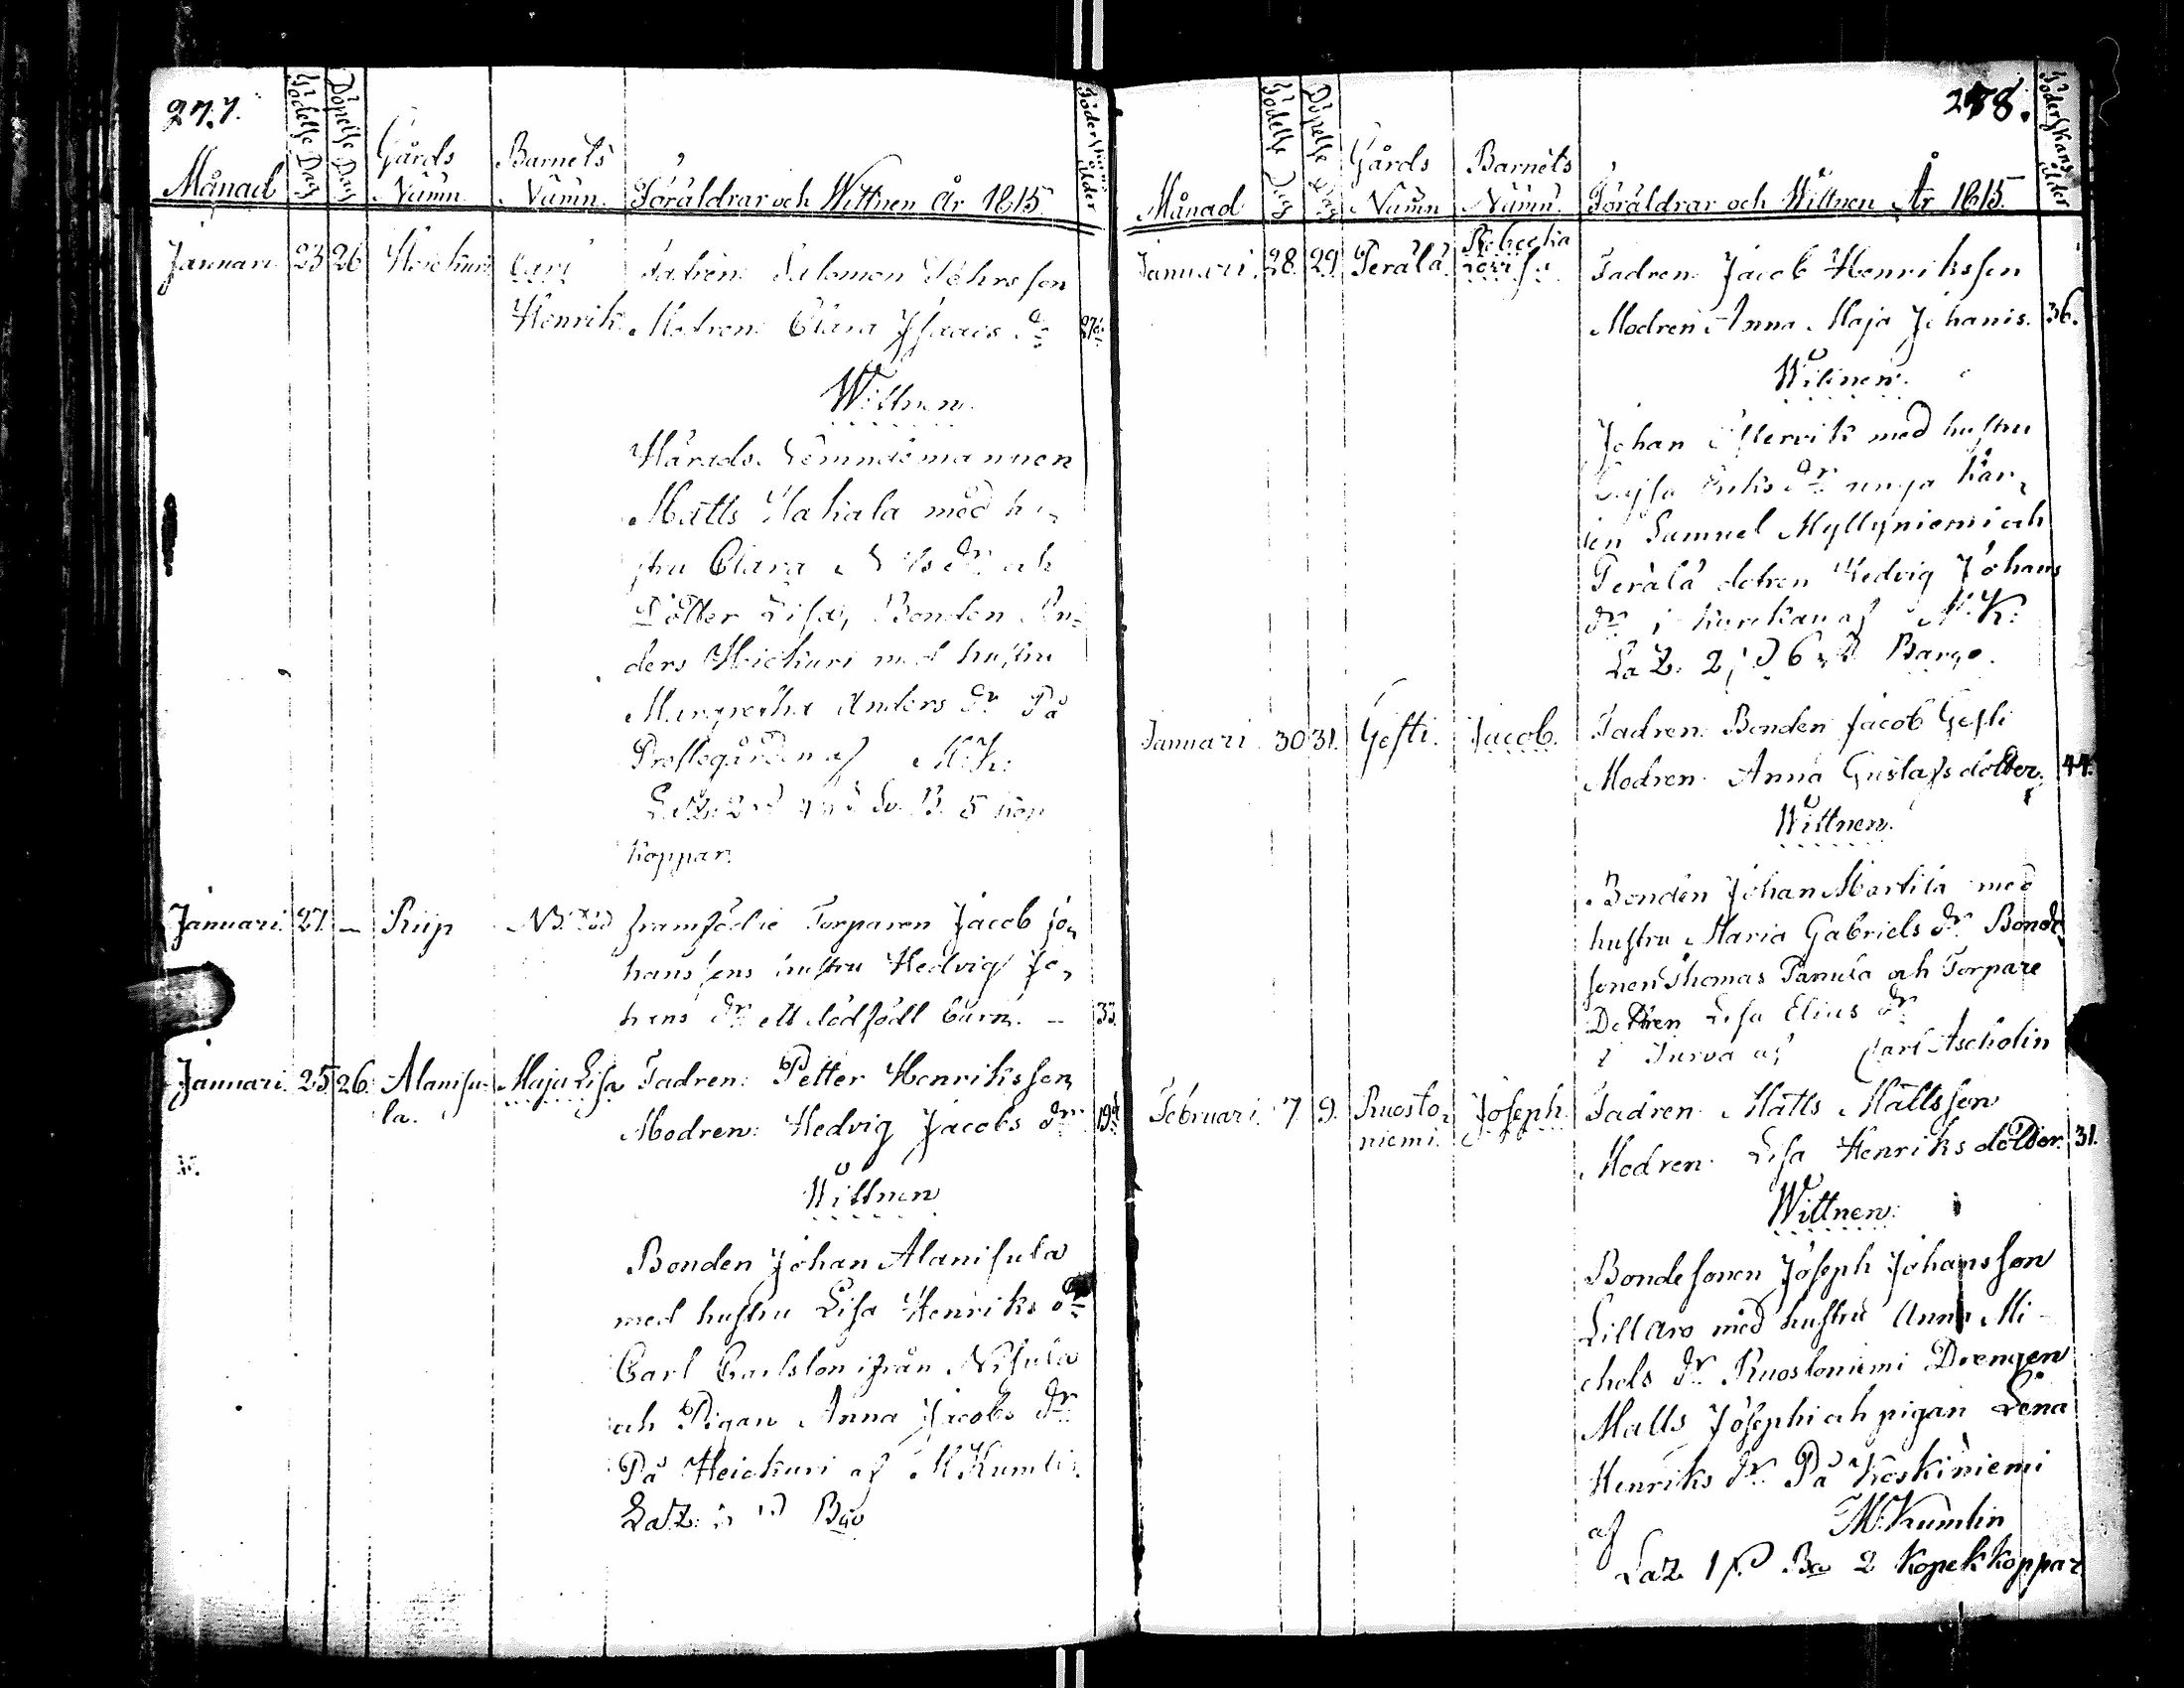 277.
Månad Födelse Dag Döpelse Dag Gårds Namn Barnets Namn. Föräldrar och Wittnen År 1815. Föderskans ålder
Januari 23 26 Heickuri Carl Fadren Salomon Jöhrsson
Henrik Modren Clara Isaacs dr 27
Wittnen.
Härads Nämndemannen
Matts med hu
stru Clara dr och
Dotter Lisa, Bonden An
ders Heickuri med hustru
Margretha Anders dr På
Prostegården af M:K:
La Z: 2
Koppar.
Januari 27. — Riip NB. Död framfödde Torparen Jacob Jo
hanssens hustru Hedvig Jo
hans dr ett dödfödt barn. — 33.
Januari 25 26. Alanisu Maja Lisa Fadren: Petter Henriksson
la. Modren: Hedvig Jacobs dr 19
Wittnen
Bonden Johan Alanisula
med hustru Lisa Henriks dr
Carl Carlsson ifrån Nisula
och Pigan Anna Jacobs dr
På Heickuri af M Kumlin.
La Z: Bco
278.
Månad Födelse Dag Döpelse Dag Gårds Namn Barnets Namn. Föräldrar och Wittnen År 1815. Föderskans ålder
Januari 28. 29. Perälä Rebecka Lovisa Fadren Jacob Henriksson
Modren Anna Maja Johanis. 36.
Wittnen.
Johan med hustru
Cajsa Eriks dr unga Kar
len Samuel Myllyniemi och
Perälä dotren Hedvig Johans
dr i Kurikka af M.K:
La Z: 2
Januari 30 31. Gesti. Jacob. Fadren: Bonden Jacob Gesti
Modren: Anna Gustafsdotter. 44.
Wittnen.
Bonden Johan Martila med
hustru Maria Gabriels dr Bonde
sonen Thomas Panula och Torpare
Dottren Lisa Elias dr
i Jurva af Carl Ascholin
Februari 7. 9. Ruosto Joseph. Fadren Matts Mattsson
niemi. Modren Lisa Henriksdotter. 31.
Wittnen.
Bondesonen Joseph Johansson
Lillaro med hustru Anna Mi
chels dr Ruostoniemi Drengen
Matts Josephi och pigan Lena
Henriks dr På Koskiniemi
af M. Kumlin
La Z. 1 Bco 2 Kopek koppar